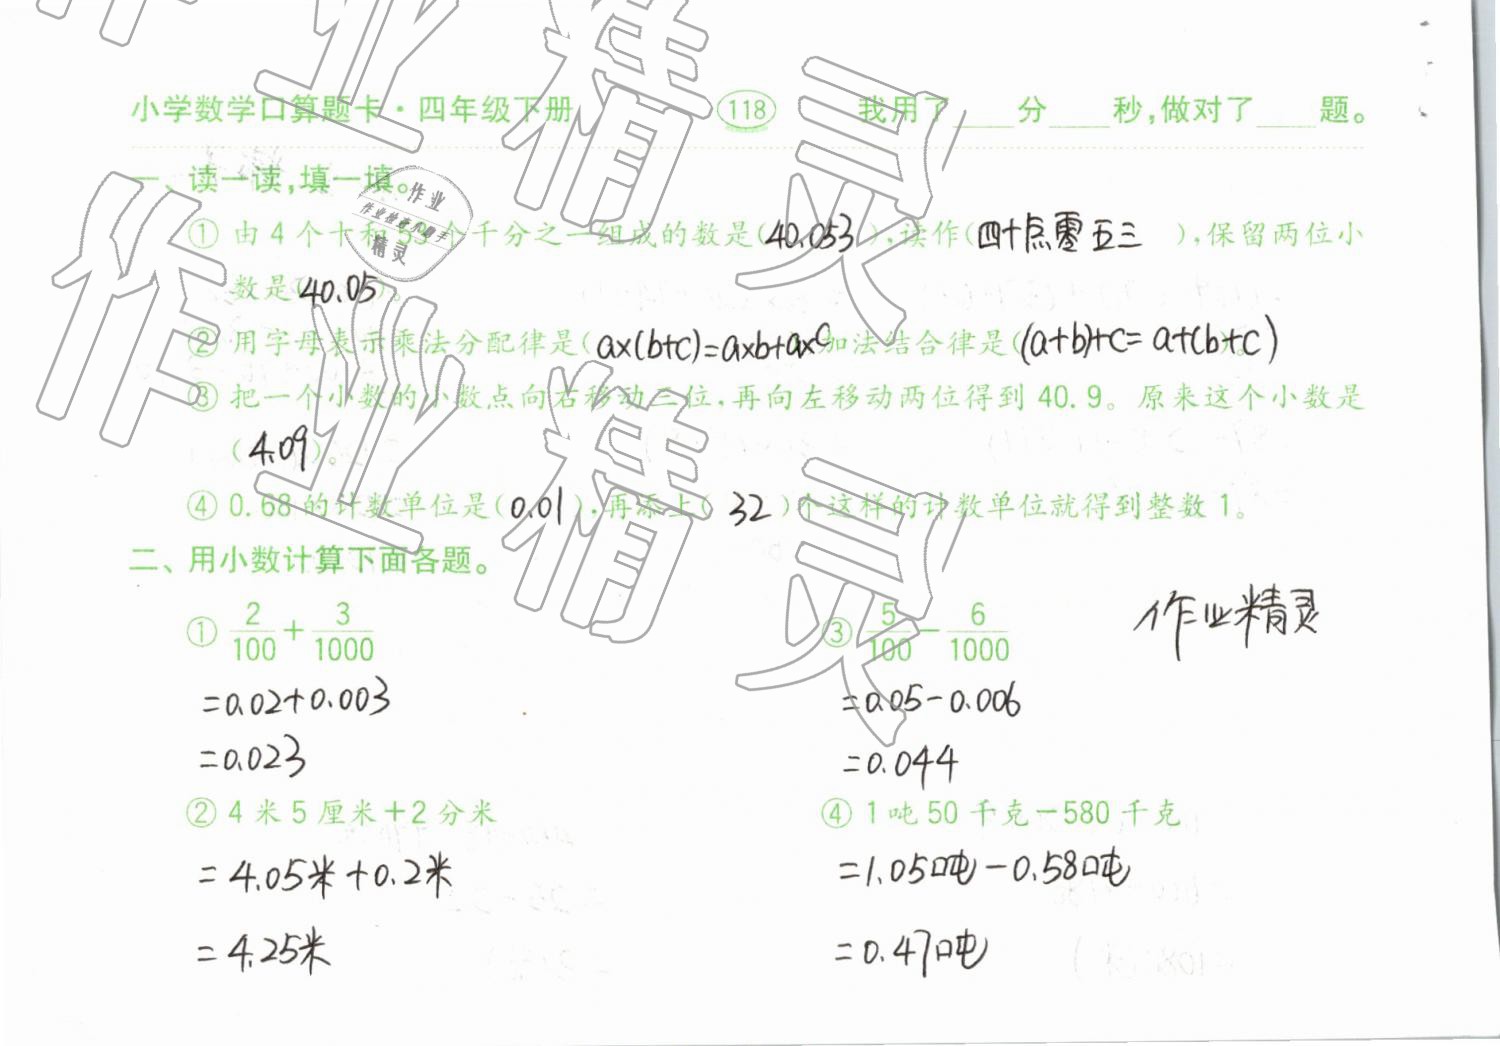 小学数学口算题卡·四年级下册 118 我用了____分____秒,做对了____题。
一、读一读,填一填。
① 由4个十和53个千分之一组成的数是(40.053),读作(四十点零五三),保留两位小
数是(40.05)。
② 用字母表示乘法分配律是(a×(b+c)=a×b+a×c)加法结合律是((a+b)+c=a+(b+c))。
③ 把一个小数的小数点向右移动三位,再向左移动两位得到40.9。原来这个小数是
(4.09)。
④ 0.68的计数单位是(0.01),再添上(32)个这样的计数单位就得到整数1。
二、用小数计算下面各题。
① 2/100+3/1000 ③ 5/100-6/1000 作业精灵
=0.02+0.003 =0.05-0.006
=0.023 =0.044
② 4米5厘米+2分米 ④ 1吨50千克-580千克
=4.05米+0.2米 =1.05吨-0.58吨
=4.25米 =0.47吨
作业精灵
作业精灵
作业
作业检查小助手
精灵